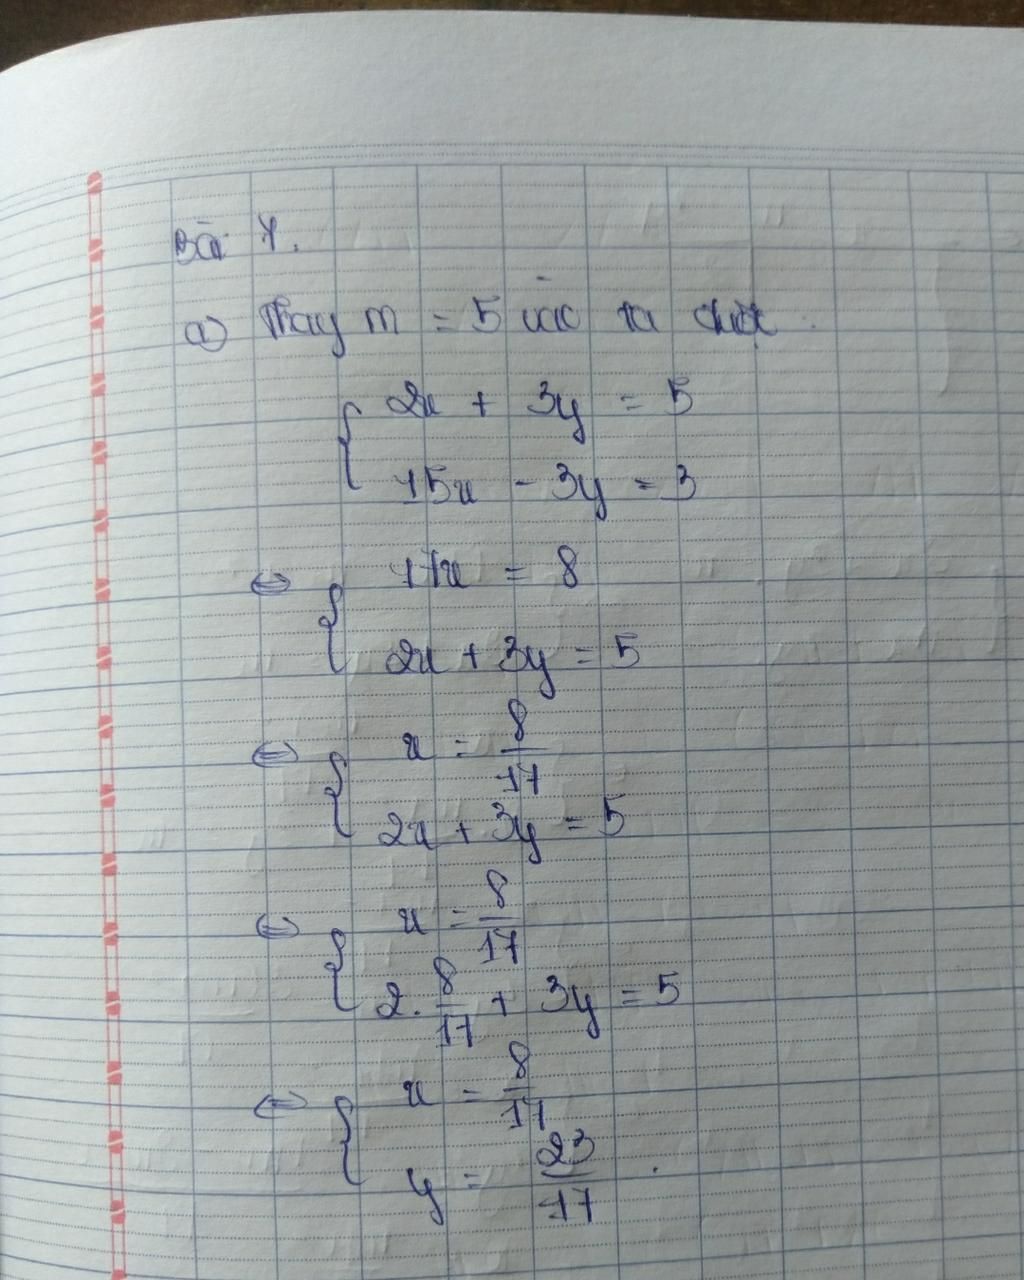 Bài 1.
a) Thay m = 5 vào ta được
{ 2x + 3y = 5
15x - 3y = 3
<=> { 17x = 8
2x + 3y = 5
<=> { x = 8/17
2x + 3y = 5
<=> { x = 8/17
2. 8/17 + 3y = 5
<=> { x = 8/17
y = 23/17 .